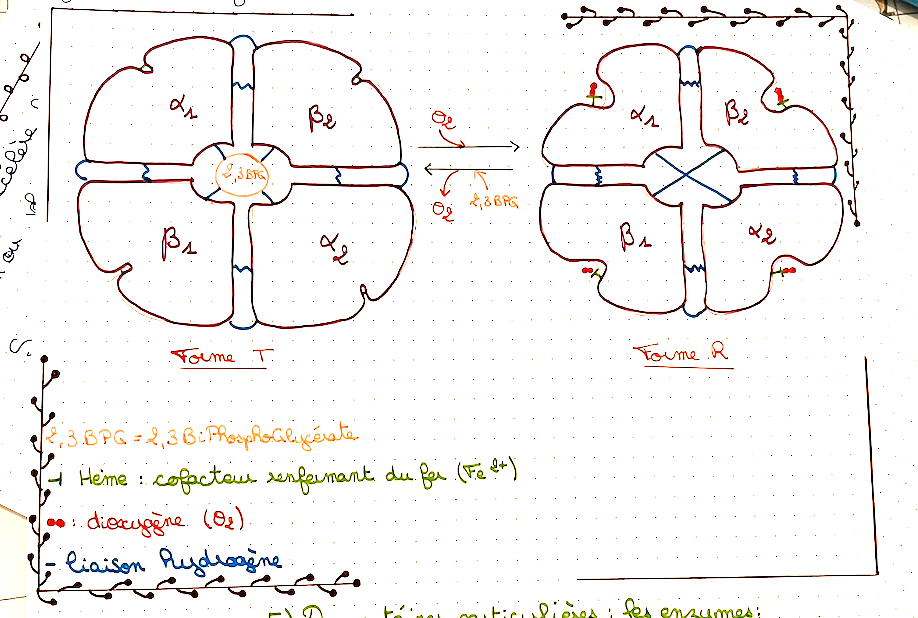 α1
β2
2,3BPG
β1
α2
O2
O2
2,3BPG
α1
β2
β1
α2
Forme T
Forme R
2,3 BPG = 2,3 BiPhosphoGlycérate
Hème : cofacteur renfermant du fer (Fe2+)
: dioxygène (O2)
- liaison hydrogène
particulières : les enzymes :